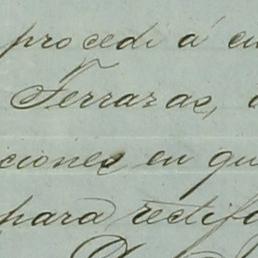 procedi á en
Terrazas,
ciones en qu
para rectif